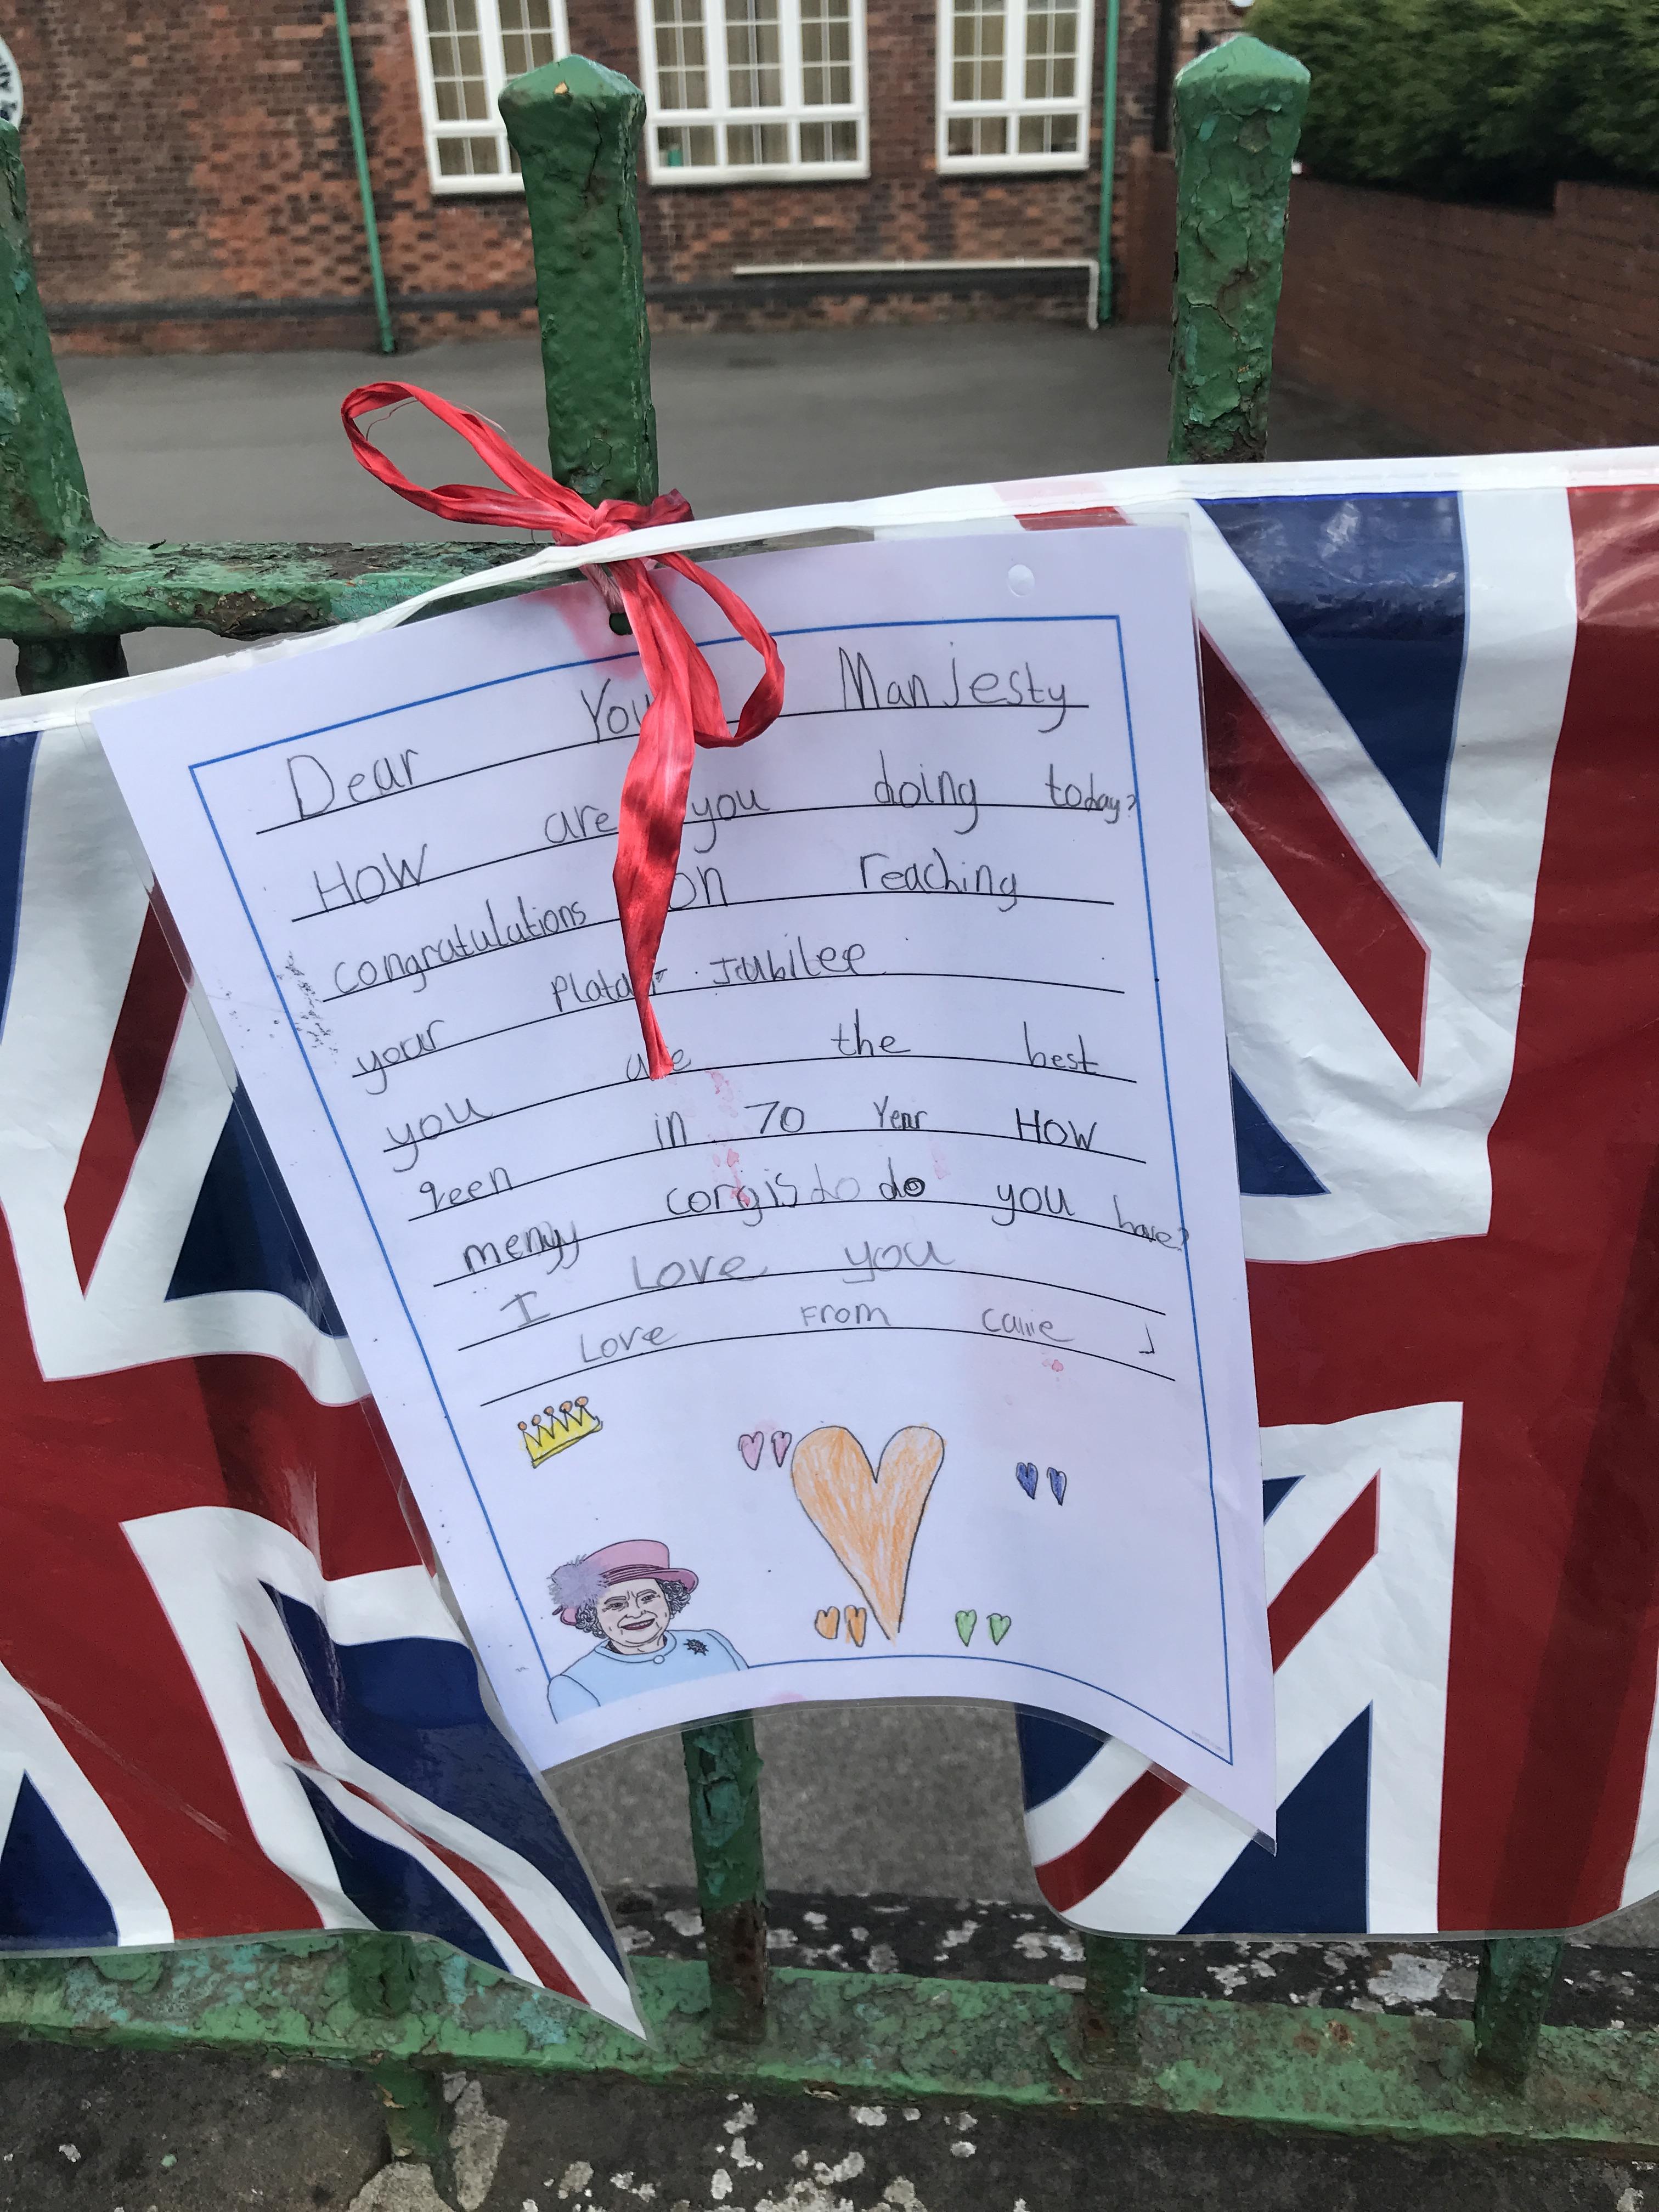 Dear You Manjesty
How are you doing today?
congratulations on reaching
your Jubilee
you are the best
qeen in 70 Year How
menyy corgis do do you have?
I Love you
Love From J